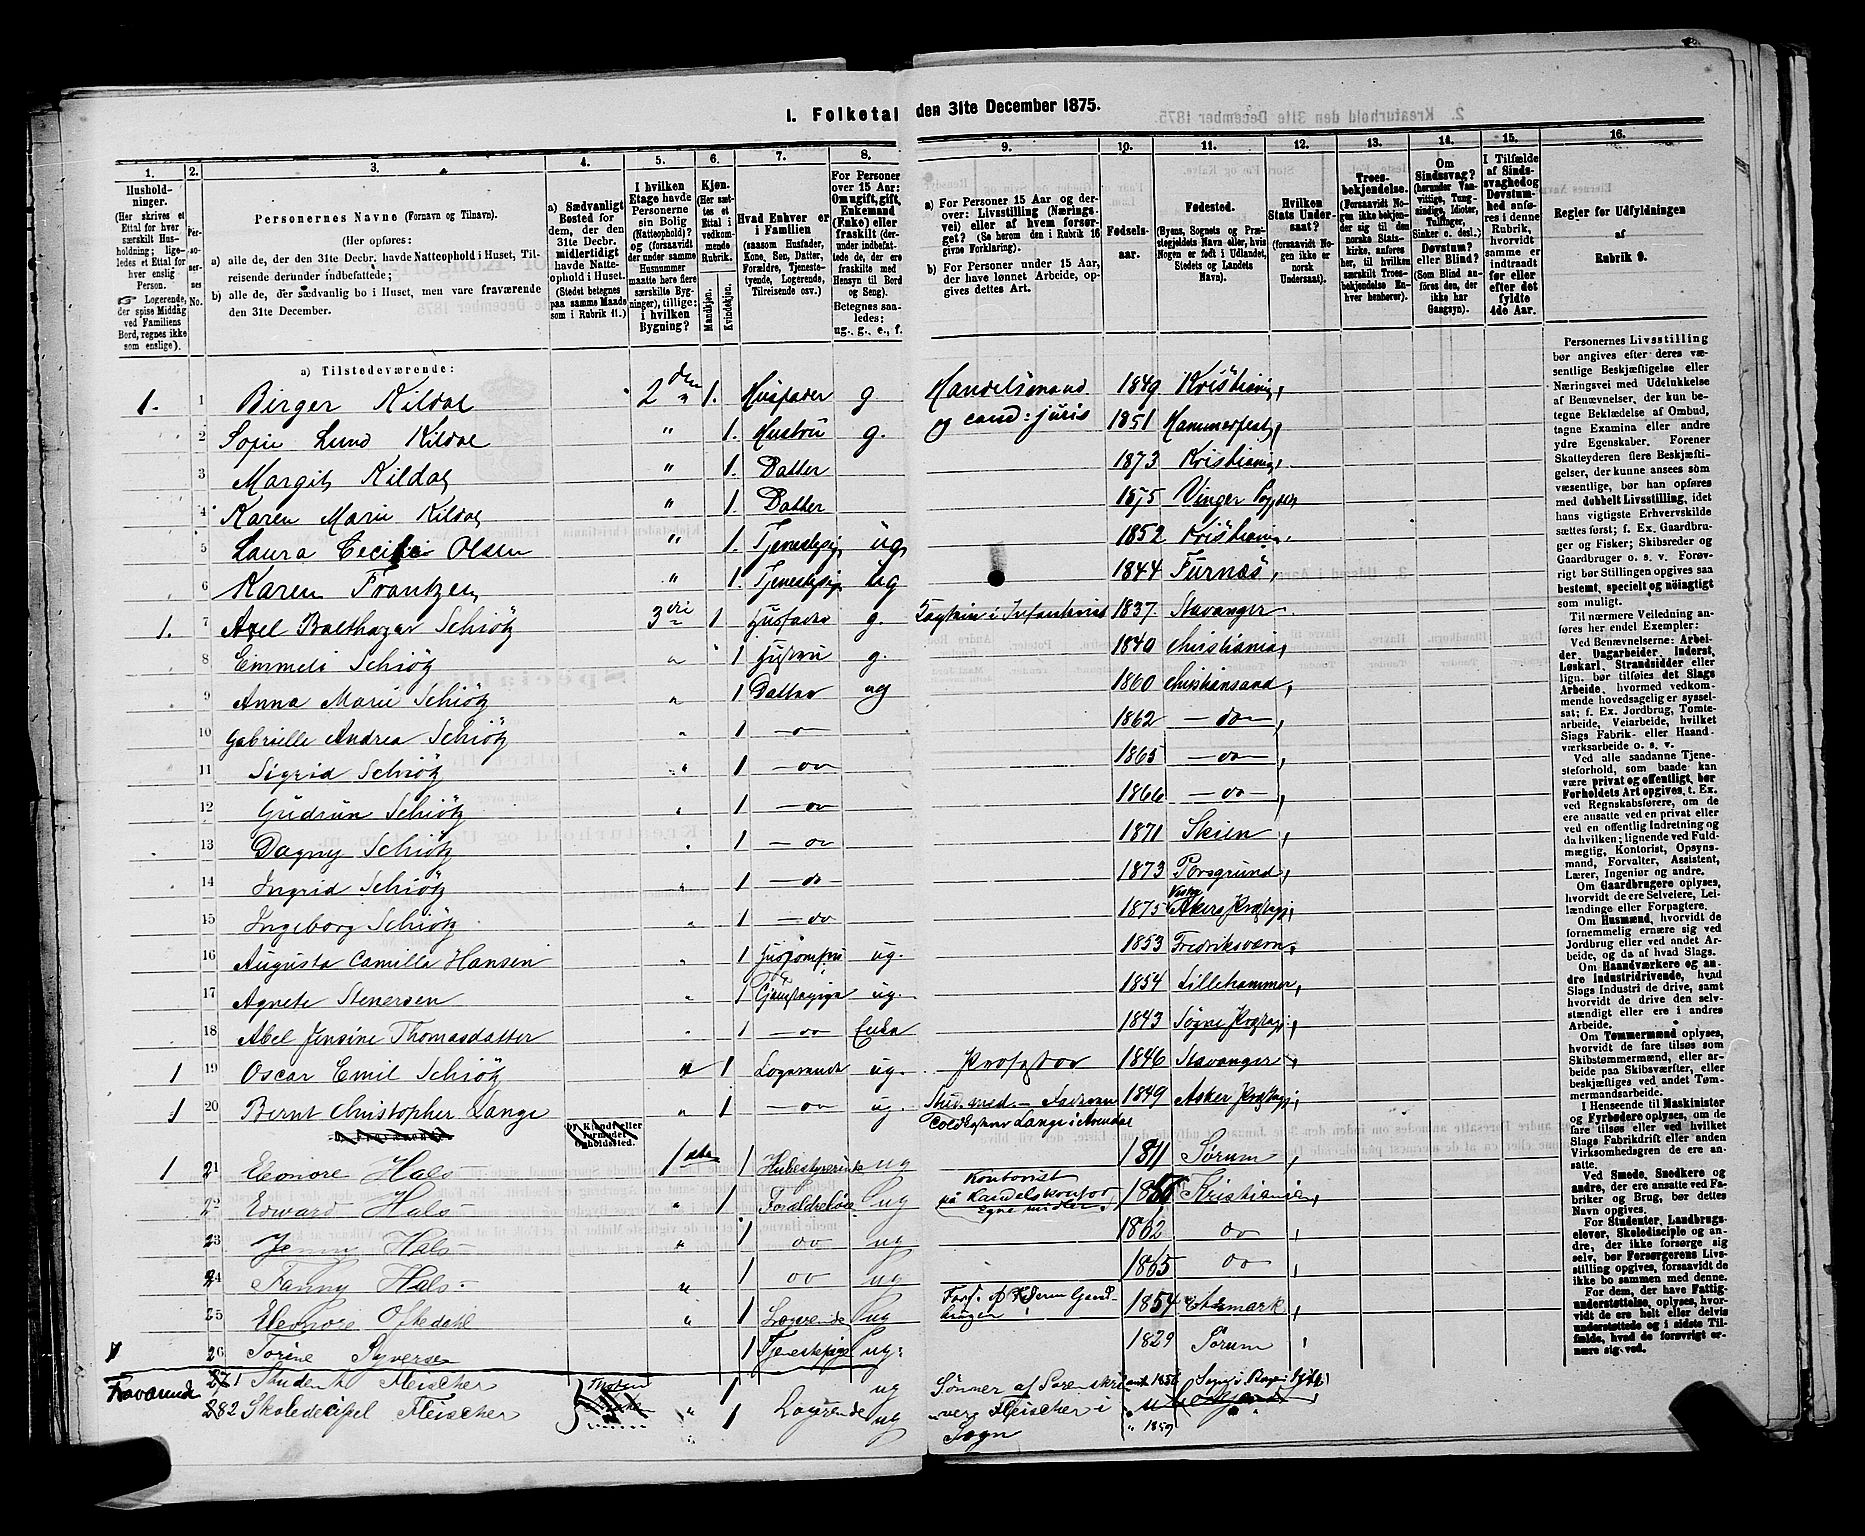 1. Folketal den 31te December 1875.
2. Kreaturhold den 31te December 1875.
1. 2. 3. 4. 5. 6. 7. 8. 9. 10. 11. 12. 13. 14. 15. 16.
Husholdninger. (Her skrives et Ettal for hver særskilt Husholdning; ligeledes et Ettal for hver enslig Person. Logerende, der spise Middag ved Familiens Bord, regnes ikke som enslige).
Personernes No.
Personernes Navne (Fornavn og Tilnavn).
(Her opføres:
a) alle de, der den 31te Decbr. havde Natteophold i Huset, Tilreisende derunder indbefattede;
b) alle de, der sædvanlig bo i Huset, men vare fraværende den 31te December.
a) Sædvanligt Bosted for dem, der den 31te Decbr. midlertidigt havde Natteophold i Huset. (Stedet betegnes paa samme Maade som i Rubrik 11.)
I hvilken Etage havde Personerne sin Bolig (Natteophold)? og (forsaavidt der under samme Husnummer maatte høre flere særskilte Bygninger), tillige: i hvilken Bygning?
Kjøn. (Her sættes et Ettal i vedkommende Rubrik.
Mandkjøn. Kvindekjøn.
Hvad Enhver er i Familien (saasom Husfader, Kone, Søn, Datter, Forældre, Tjenestetyende, Logerende, Tilreisende osv.)
For Personer over 15 Aar: Om ugift, gift, Enkemand (Enke) eller fraskilt (derunder indbefattede de, der ere fraskilte med Hensyn til Bord og Seng). Betegnes saaledes: ug., g., e., f.
a) For Personer 15 Aar og derover: Livsstilling (Næringsvei) eller af hvem forsørget? (Se herom den i Rubrik 16 givne Forklaring).
b) For Personer under 15 Aar, der have lønnet Arbeide, opgives dettes Art.
Fødselsaar.
Fødested. (Byens, Sognets og Præstegjeldets Navn eller, hvis Nogen er født i Udlandet, Stedets og Landets Navn).
Hvilken Stats Undersaat? (forsaavidt Nogen ikke er norsk Undersaat).
Troesbekjendelse. (Forsaavidt Nogen ikke bekjender sig til den norske Statskirke, anføres her, til hvilken særskilt Troesbekjendelse Enhver henhører).
Om Sindssvag? (herunder Vanvittige, Tungsindige, Idioter, Tullinger, Sinker o. desl.). Døvstum? eller Blind? (Som Blind anføres den, der ikke har Gangsyn).
I Tilfælde af Sindssvaghed og Døvstumhed anføres i denne Rubrik, hvorvidt samme er indtraadt før eller efter det fyldte 4de Aar.
Regler for Udfyldningen af Rubrik 9.
a) Tilstedeværende:
1. 1 Birger Kildal 2den 1. Husfader g Handelsmand og cand: juris 1849 Kristiania,
2 Sofie Lund Kildal " 1. Hustru g. 1851 Hammerfest,
3 Margit Kildal " 1. Datter 1873 Kristiania,
4 Karen Marie Kildal " 1. Datter 1875 Vinger
5 Laura Cecilie Olsen " 1. Tjenestepig ug 1852 Kristiania,
6 Karen Frantzen " 1. Tjenestepig ug 1844 Furnæs,
1. 7 Axel Balthazar Schiötz 3die 1 Husfader g. Kaptein i Infanteriet 1837. Stavanger
8 Emmeli Schiötz " 1 Hustru g. 1840 Christiania,
9 Anna Marie Schiötz " 1 Datter ug 1860 Christiansand,
10 Gabrielle Andrea Schiötz " 1 1862 - do -
11 Sigrid Schiötz " 1 - do 1865 - do -
12 Gudrun Schiötz " 1 - do 1866 - do -
13 Dagny Schiötz " 1 - do 1871 Skien,
14 Ingrid Schiötz " 1 - do 1873 Porsgrund,
15 Ingeborg Schiötz " 1 - do 1875 Vestre Akers Præstegj,
16 Augusta Camilla Hansen " 1 Husjomfru ug. 1853 Fredriksværn,
17 Agnete Stenersen " 1 Tjenestepige ug. 1854 Lillehammer,
18 Abel Jensine Thomasdatter " 1 - do Enke 1843 Søgne Præstegj,
1 19 Oscar Emil Schiötz " 1 Logerende ug. 1846 Stavanger,
1 20 Bernt Christopher Lange " 1 - do ug. Stud. med. - Faderen Toldkasserer Lange i Arendal 1849 Asker Præstegj,
b) Fraværende:
b) Kjendt eller formodet Opholdssted.
1 21 Eleonore Hals 1ste 1 Husbestyrerinde ug 1811 Sørum,
22 Edward Hals " 1 Forældreløse ug Kontorist på Handelskontor, Egne midler Kristiania,
23 Jenny Hals " 1 do ug 1862 do,
24 Fanny Hals - " 1 do ug 1865 do,
25 Eleonore Oftedahl " 1 Logerende ug 1854
26 Torine Syversen 1 Tjenestepige ug: 1829 Sørum,
Fraværende 27 1 Student Fleischer 1 ug Sønner af Sorenskriver Fleischer i Sogn
28 2 Skoledisipel Fleischer " 1 Logerende ug " 1859
Personernes Livsstilling bør angives efter deres væsentlige Beskjæftigelse eller Næringsvei med Udelukkelse af Benævnelser, der kun betegne Beklædelse af Ombud, tagne Examina eller andre ydre Egenskaber. Forener Skatteyderen flere Beskjæftigelser, der kunne ansees som væsentlige, bør han opføres med dobbelt Livsstilling, idet hans vigtigste Erhvervskilde sættes først; f. Ex. Gaardbruger og Fisker; Skibsreder og Gaardbruger o. s. v. Forøvrigt bør Stillingen opgives saa bestemt, specielt og nøiagtigt som muligt.
Til nærmere Veiledning anføres her endel Exempler:
Ved Benævnelserne: Arbeider, Dagarbeider, Inderst, Løskarl, Strandsidder eller lign. bør tilføies det Slags Arbeide, hvormed vedkommende hovedsagelig er sysselsat; f. Ex. Jordbrug, Tomtearbeide, Veiarbeide, hvilket Slags Fabrik- eller Haandværksarbeide o. s. v.
Ved alle saadanne Tjenesteforhold, som baade kan være privat og offentligt, bør Forholdets Art opgives, t. Ex. ved Regnskabsførere, om de ere ansatte ved en privat eller ved en offentlig Indretning og da hvilken; lignende ved Fuldmægtig, Kontorist, Opsynsmand, Forvalter, Assistent, Lærer, Ingeniør og andre.
Om Gaardbrugere oplyses, hvorvidt de ere Selveiere, Leilændinge eller Forpagtere.
Om Husmænd, hvorvidt de fornemmelig ernære sig ved Jordbrug eller ved andet Arbeide, og da af hvad Slags.
Om Haandværkere og andre Industridrivende, hvad Slags Industri de drive, samt hvorvidt de drive den selvstændigt eller ere i andres Arbeide.
Om Tømmermænd oplyses, hvorvidt de fare tilsøs som Skibstømmermænd, eller arbeide paa Skibsværfter, eller beskjæftiges ved andet Tømmermandsarbeide.
I Henseende til Maskinister og Fyrbødere oplyses, om de fare tilsøs eller ved hvilket Slags Fabrikdrift eller anden Virksomhedsgren de ere ansatte.
Ved Smede, Snedkere og andre, der ere ansatte ved Fabriker og Brug, bør dettes Navn opgives.
For Studenter, Landbrugselever, Skoledisciple og andre, der ikke forsørge sig selv, bør Forsørgerens Livsstilling opgives, forsaavidt de ikke bo sammen med denne.
For dem, der have Fattigunderstøttelse, oplyses, hvorvidt de ere helt eller delvis understøttede og i sidste Tilfælde, hvad de forøvrigt ernære sig ved.